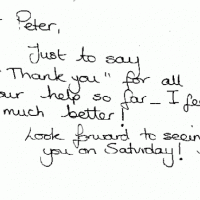 Peter,
Just to say
"Thank you" for all
your help so far - I fe
much better!
Look forward to seein
you on Saturday!